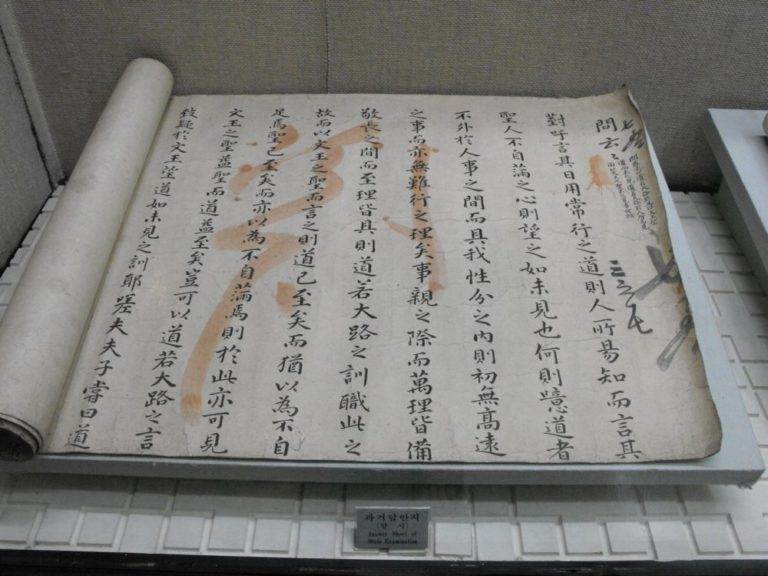 問云〻
三之五
對吁言其日用常行之道則人所易知而言其
聖人不自滿之心則望之如未見也何則噫道者
不外於人事之間而具我性分之內則初無高遠
之事而亦無難行之理矣事親之際而萬理皆備
敬長之間而至理皆具則道若大路之訓職此之
故而以文王之聖而言之則道已至矣而猶以為不自
足焉聖已至矣而亦以為不自滿焉則於此亦可見
文王之聖益聖而道益至矣豈可以道若大路之言
致疑於文王望道如未見之訓耶嗟夫夫子嘗曰道
과거답안지
(향시)
Answer Sheet of
State Examination